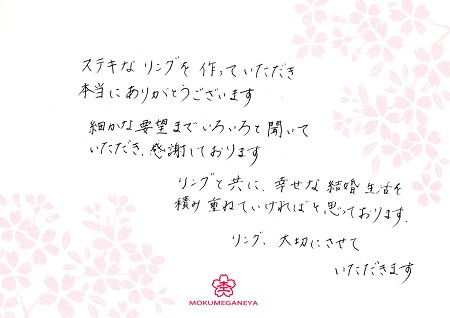 ステキな リングを 作っていただき
本当にありがとうございます
細かな要望までいろいろと聞いて
いただき、感謝しております
リングと共に、幸せな結婚生活を
積み重ねていければと思っております。
リング、大切にさせて
いただきます
MOKUMEGANEYA